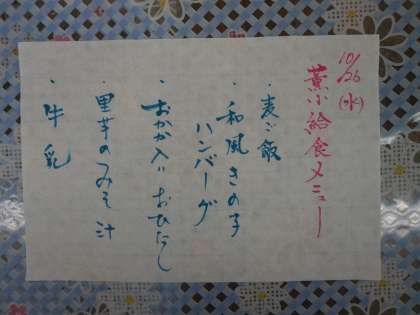 10/26(水)
薫小給食メニュー
・麦ご飯
・和風きの子
ハンバーグ
・おかか入りおひたし
・里芋のみそ汁
・牛乳